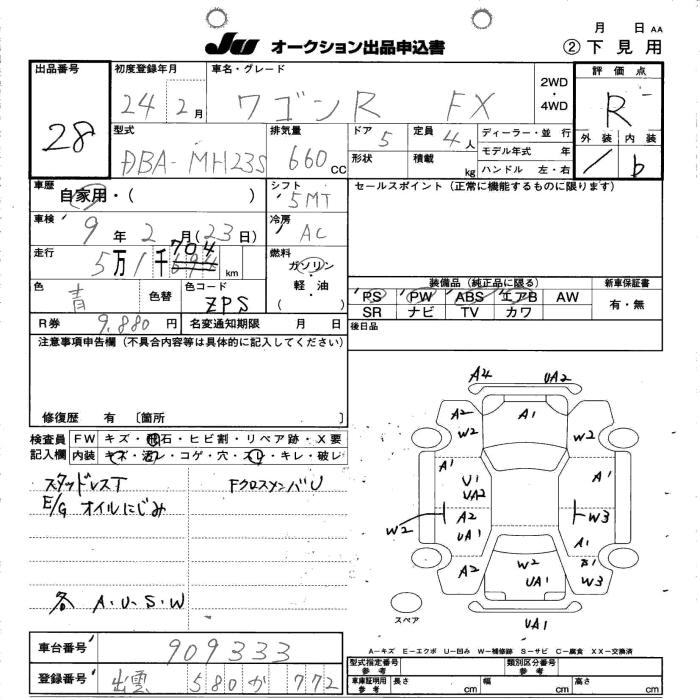 月 日 AA
JU オークション出品申込書 ② 下見用
出品番号 28
初度登録年月 24年 2月
車名・グレード ワゴンR FX
2WD・4WD
評価点 R
外装 内装 b
型式 DBA-MH23S
排気量 660 CC
ドア 5 定員 4人
形状 積載 kg
ディーラー・並行
モデル年式 年
ハンドル 左・右
車歴 自家用・( )
シフト 5MT
セールスポイント(正常に機能するものに限ります)
車検 9年 2月(23日)
冷房 AC
走行 5万1千704 km
燃料 ガソリン・軽油 ( )
色 青 色替
色コード ZPS
装備品(純正品に限る) 新車保証書
PS PW ABS エアB AW 有・無
SR ナビ TV カワ
R券 9,880円 名変通知期限 月 日
後日品
注意事項申告欄(不具合内容等は具体的に記入してください)
修復歴 有 [箇所 ]
検査員記入欄
FW キズ・飛石・ヒビ割・リペア跡・X要
内装 キズ・汚レ・コゲ・穴・スレ・キレ・破レ
スタッドレスT FクロスメンバU
E/G オイルにじみ
各 A・U・S・W
A4 UA2
A2 A1
W2 W2
A1 A1
U1
UA2
W2 A2 W3
UA1 A1
A2 W2 UA1 W3
UA1
スペア
A-キズ E-エクボ U-凹み W-補修跡 S-サビ C-腐食 XX-交換済
車台番号 909333
登録番号 出雲 580 か 772
型式指定番号 参考 類別区分番号 参考
車庫証明用 参考 長さ cm 幅 cm 高さ cm